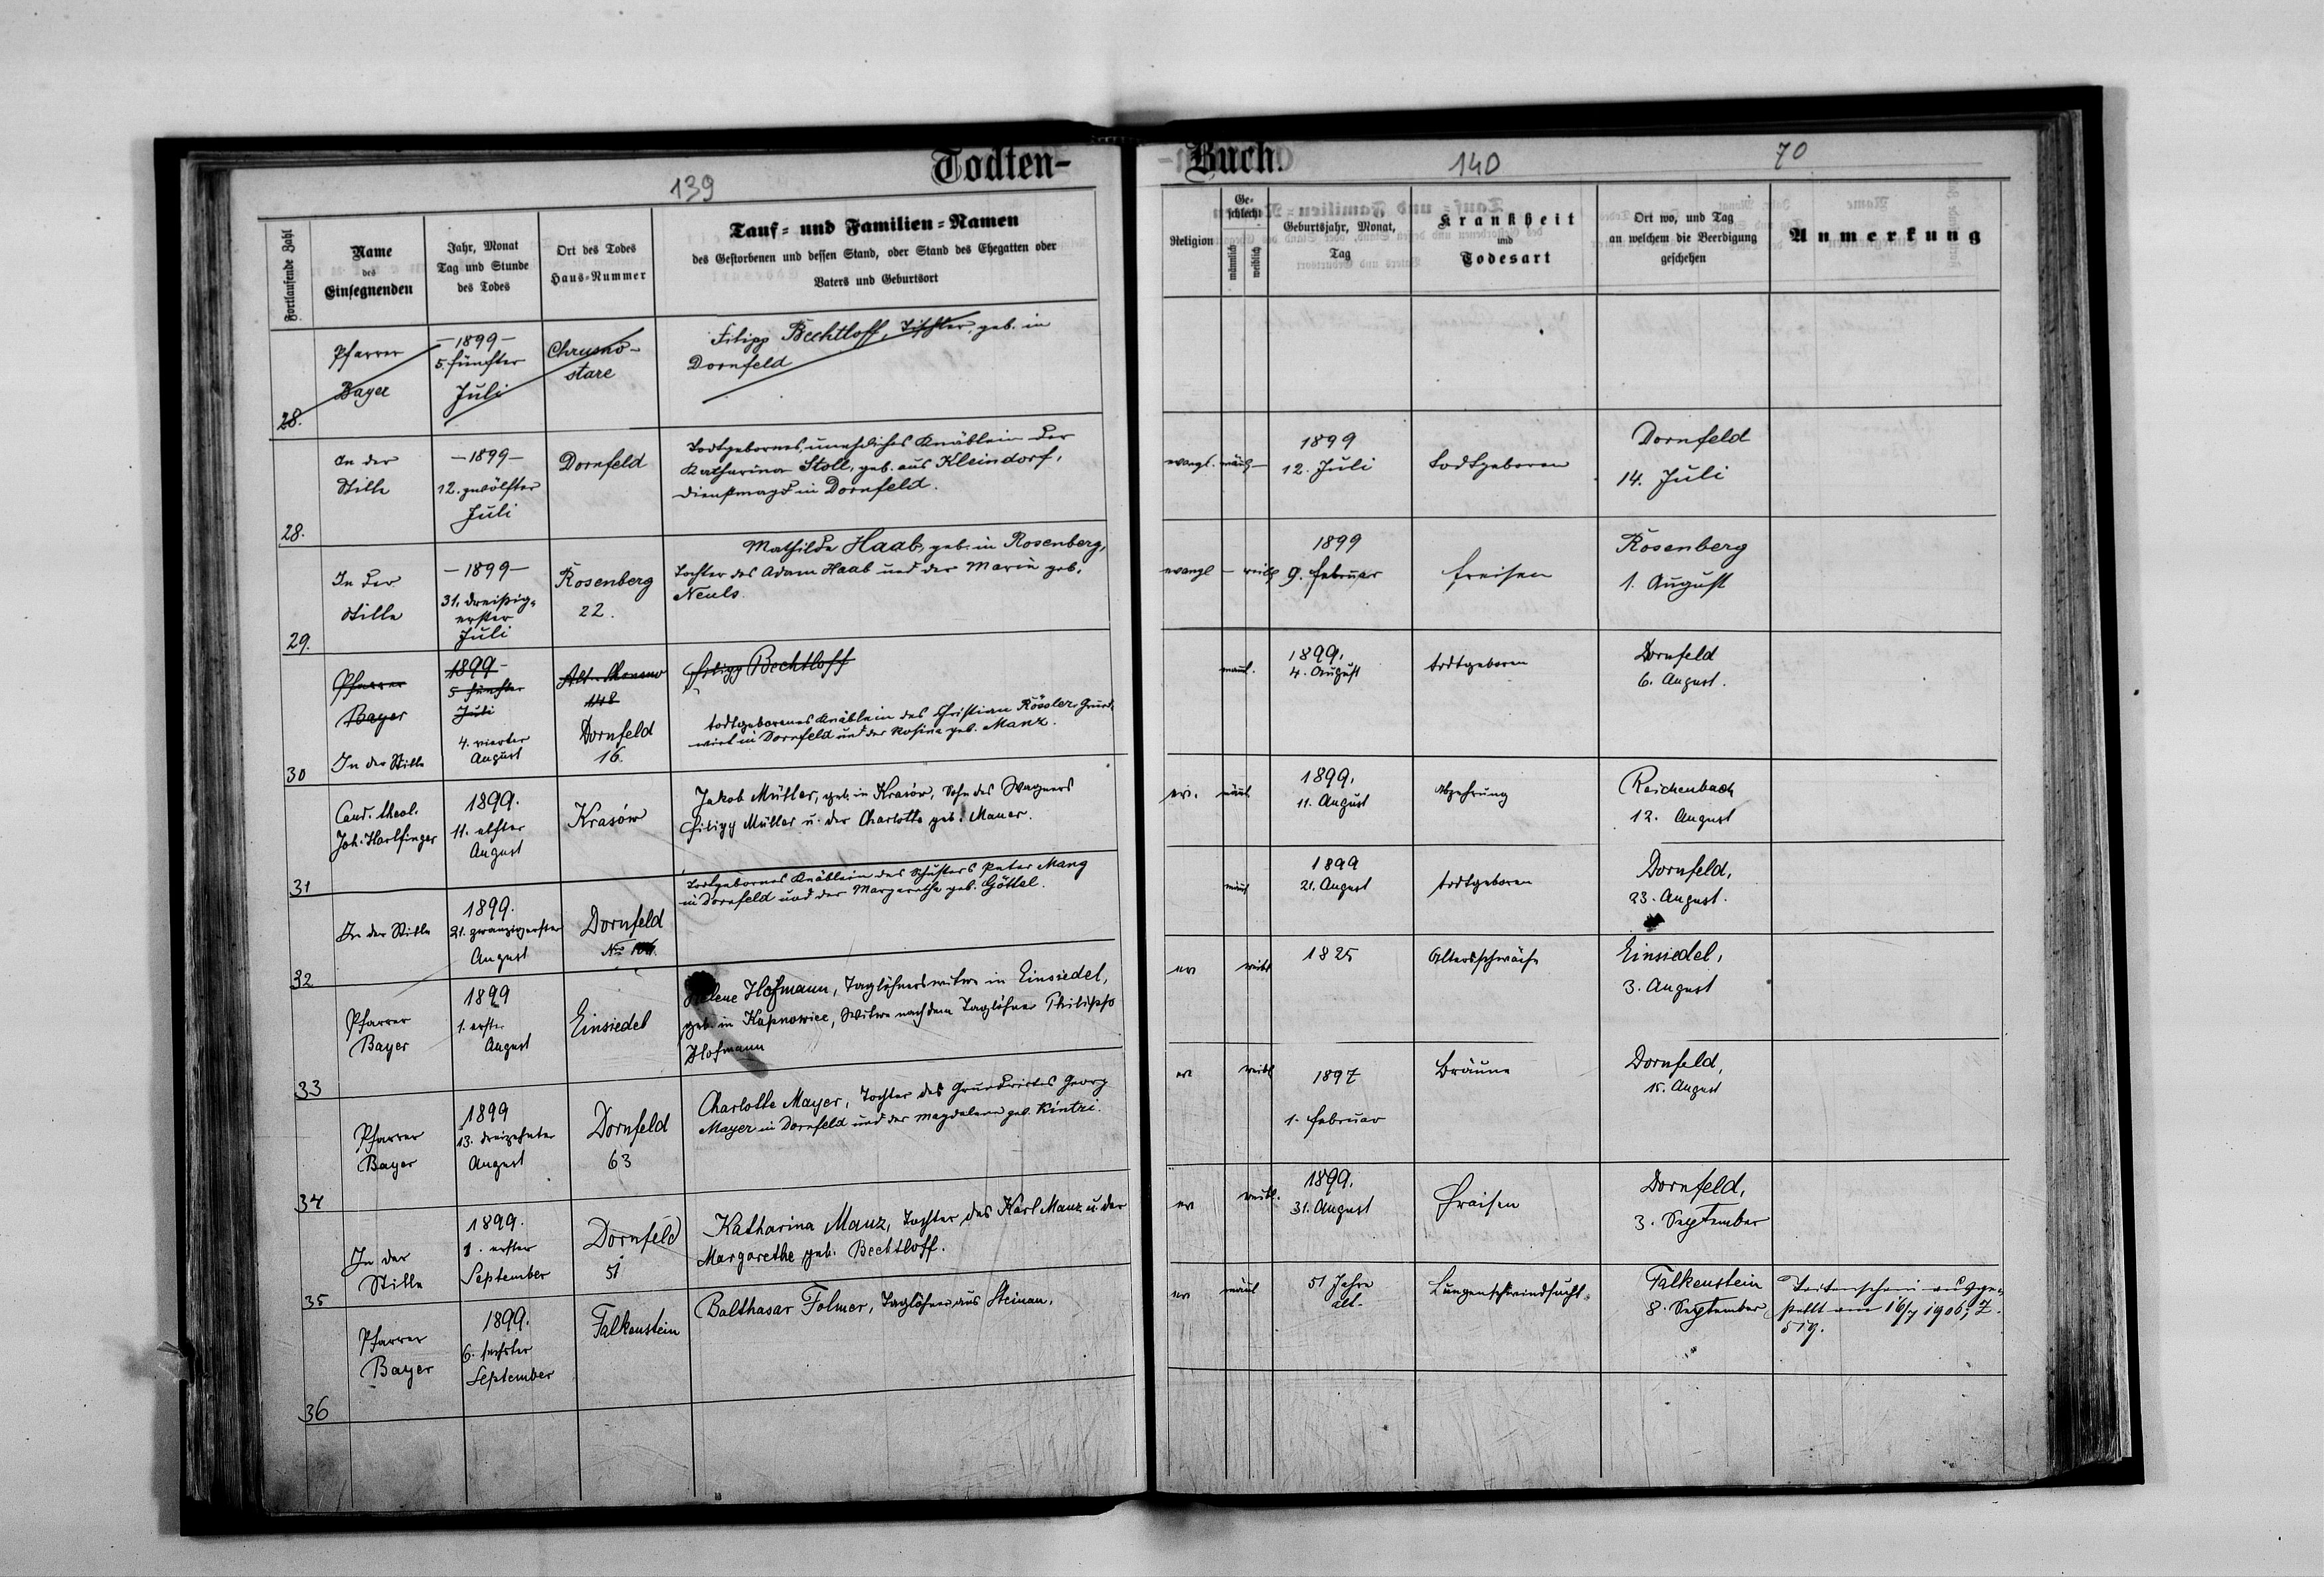 Todten-
Buch.
139
140
70
Fortlaufende Zahl
Name
des
Einsegnenden
Jahr, Monat
Tag und Stunde
des Todes
Ort des Todes
Haus-Nummer
Tauf- und Familien-Namen
des Gestorbenen und dessen Stand, oder Stand des Ehegatten oder
Vaters und Geburtsort
Religion
Ge-
schlecht
männlich
weiblich
Geburtsjahr, Monat,
Tag
Krankheit
und
Todesart
Ort wo, und Tag
an welchem die Beerdigung
geschehen
Anmerkung
28.
Pfarrer
Bayer
-1899-
5. fünfter
Juli
Chrusno-
stare
Filipp Bechtloff, Tischler, geb. in
Dornfeld
28.
In der
Stille
-1899-
12. zwölfter
Juli
Dornfeld
Todtgebornes, unehliches Knäblein der
Katharina Stoll, geb. aus Kleindorf,
Dienstmagd in Dornfeld.
evangl. männl. -
1899
12. Juli
todtgeboren
Dornfeld
14. Juli
29.
In der
Stille
-1899-
31. dreißig-
erster
Juli
Rosenberg
22.
Mathilde Haab, geb. in Rosenberg,
Tochter des Adam Haab und der Marie geb.
Neuls.
evangl - weibl
1899
9. Februar
Freisen
Rosenberg
1. August
30
Pfarrer
Bayer
In der Stille
1899-
5 fünfter
Juli
4. vierter
August
148
Dornfeld
16.
Filipp Bechtloff
todtgeborenes Knäblein des Christian Rössler, Grund-
wirt in Dornfeld und der Rosina geb. Manz.
männl.
1899.
4. August
todtgeboren
Dornfeld
6. August.
31
Cand. theol.
Joh. Harlfinger
1899.
11. elfter
August
Krasów
Jakob Müller, geb. in Krasów, Sohn des Wagners
Filipp Müller u. der Charlotte geb. Mauer.
ev. männl
1899.
11. August
Abzehrung
Reichenbach
12. August
32
In der Stille
1899.
21. zwanzigerster
August
Dornfeld
No
Todtgebornes Knäblein des Schusters Peter Mang
in Dornfeld und der Margarethe geb. Göttel.
männl
1899
21. August
todtgeboren
Dornfeld,
23. August.
33
Pfarrer
Bayer
1899
1. erster
August
Einsiedel
Helene Hofmann, Taglöhnerswitwe in Einsiedel,
geb. in Kupnowice, Witwe nach dem Taglöhner Philipp
Hofmann
ev weibl
1825
Altersschwäche
Einsiedel,
3. August
34
Pfarrer
Bayer
1899
13. dreizehnter
August
Dornfeld
63
Charlotte Mayer, Tochter des Grundwirtes Georg
Mayer in Dornfeld und der Magdalena geb. Kintzi.
ev weibl
1897
1. Februar
Bräune
Dornfeld,
15. August
35
In der
Stille
1899.
1. erster
September
Dornfeld
51
Katharina Manz, Tochter des Karl Manz u. der
Margarethe geb. Bechtloff.
ev weibl.
1899.
31. August
Fraisen
Dornfeld,
3. September
36
Pfarrer
Bayer
1899.
6. sechster
September
Falkenstein
Balthasar Folmer, Taglöhner aus Steinau.
ev männl
51 Jahre
alt.
Lungenschwindsucht.
Falkenstein
8. September
Totenschein ausge-
stellt am 16/7 1906; Z.
519.